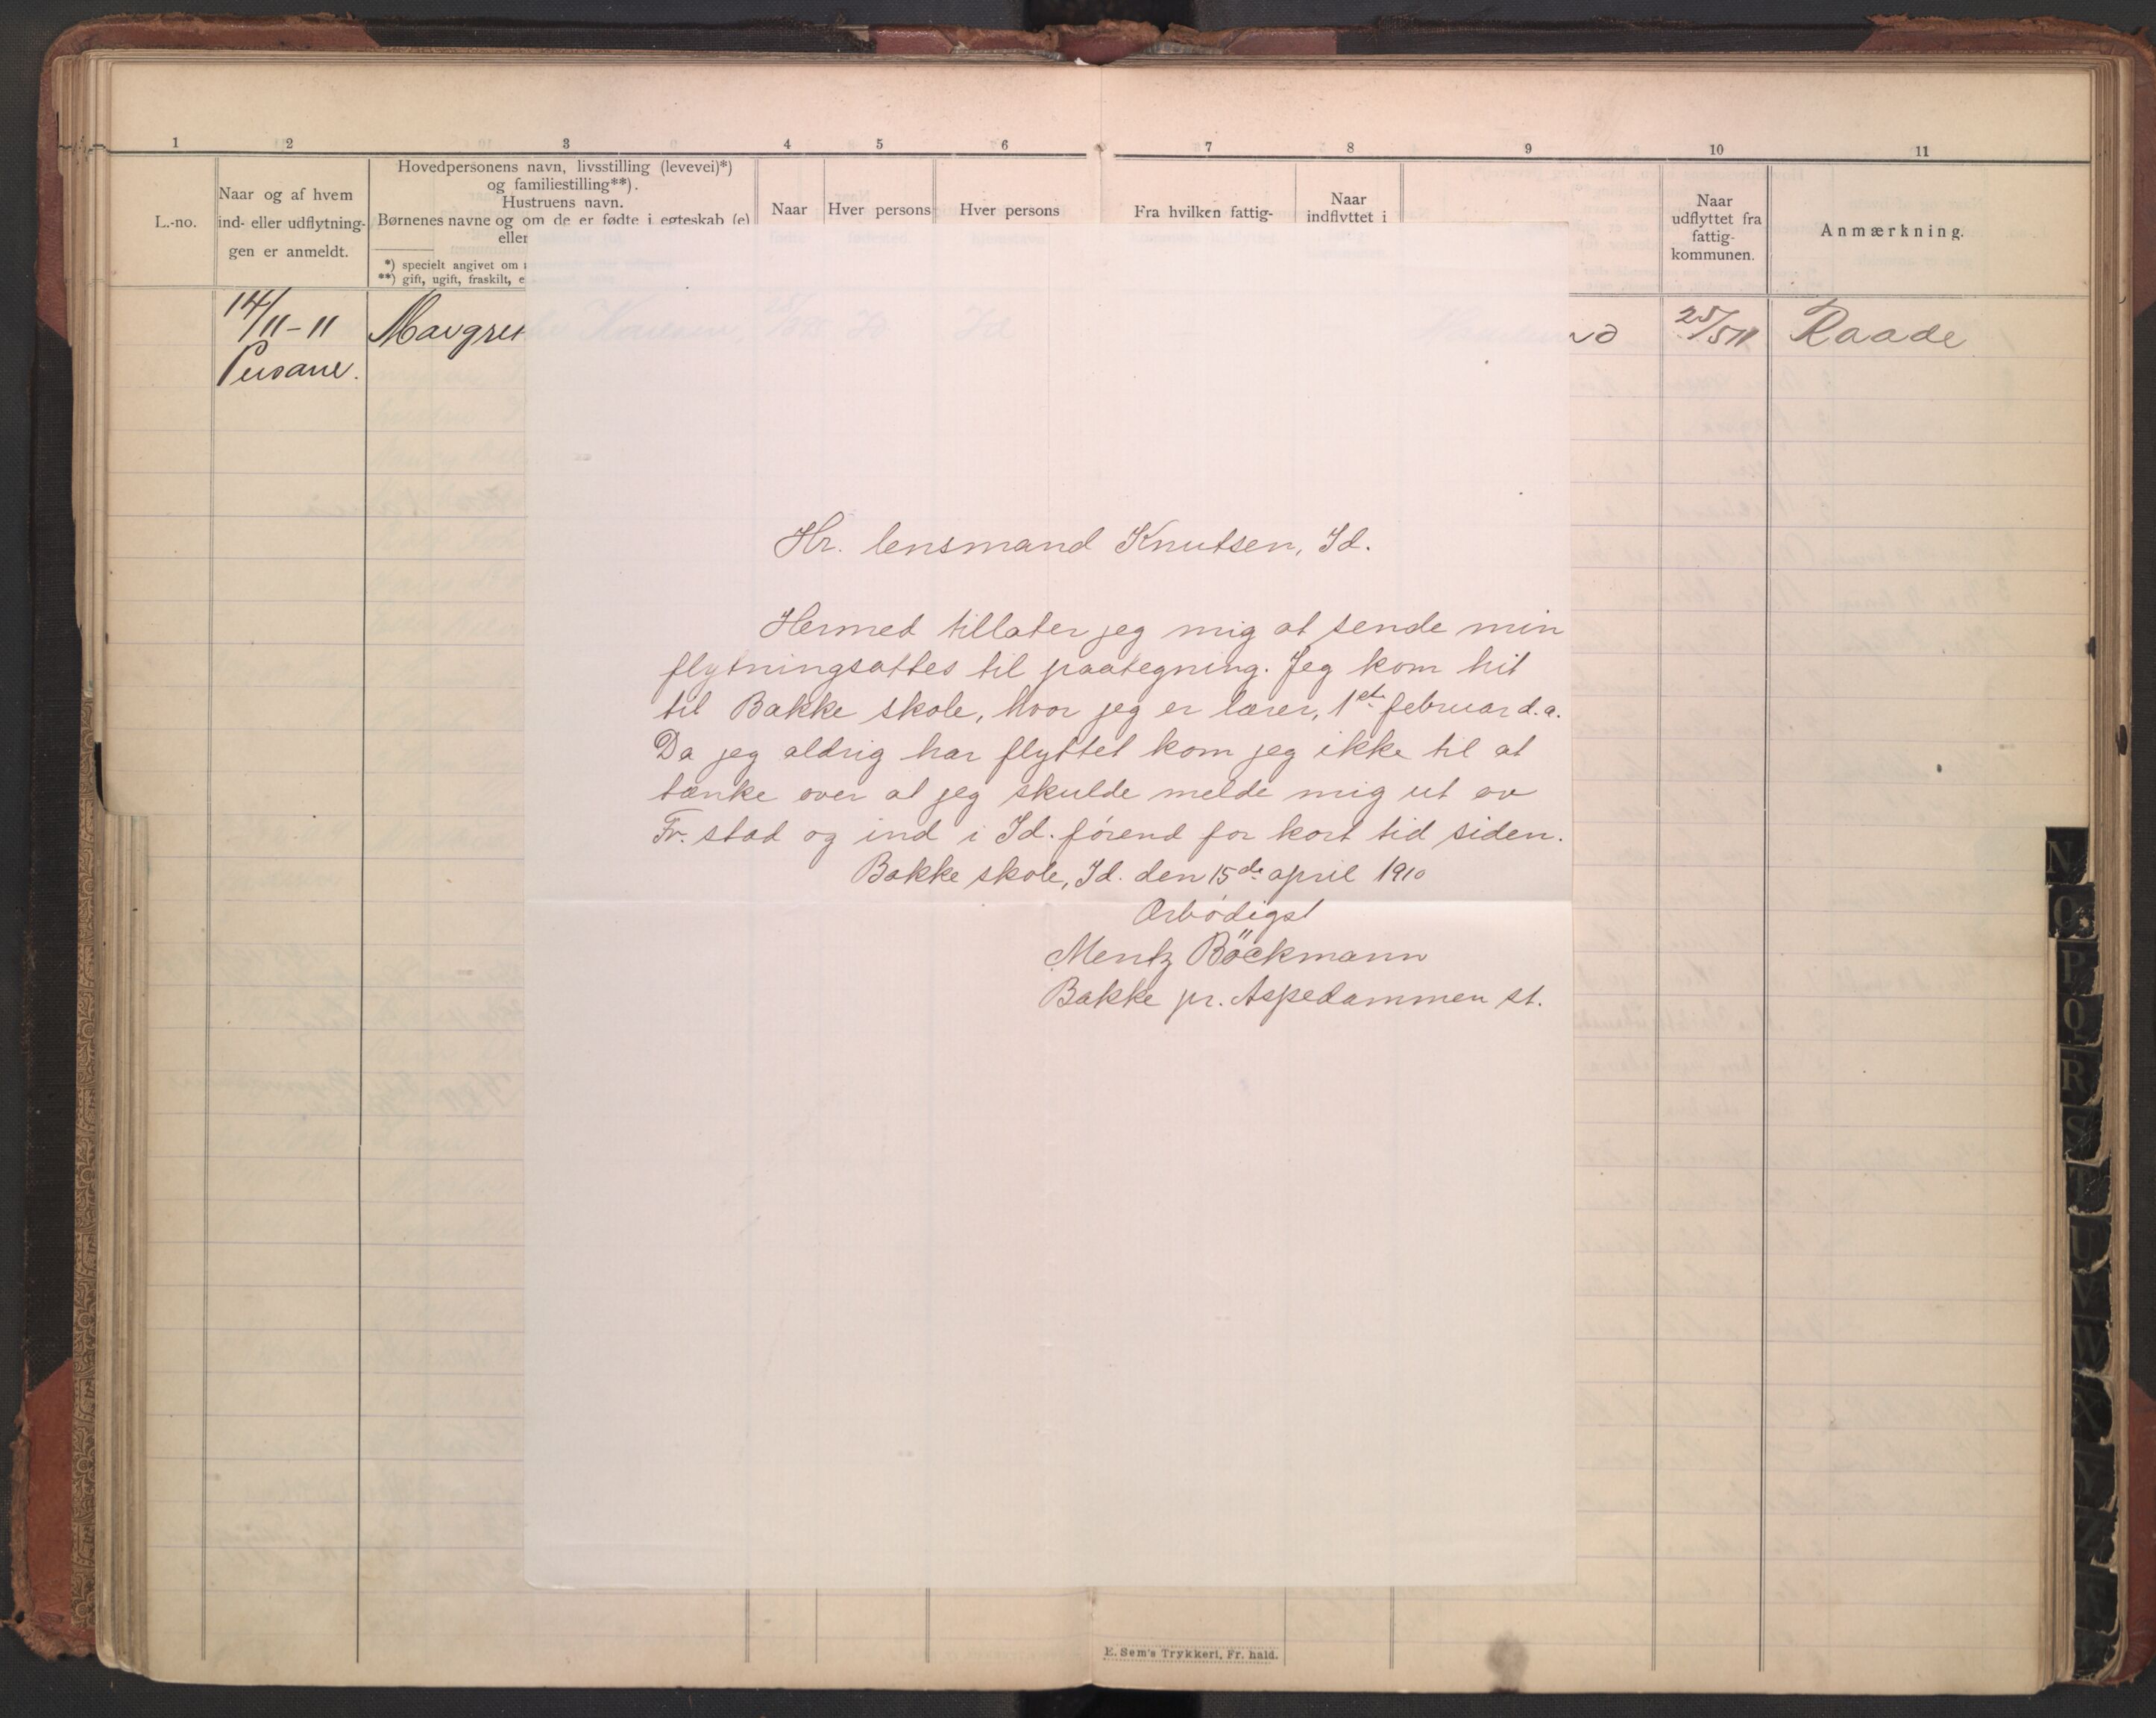 1 2 3 4 5 6 7 8 9 10 11
L.-no.
Naar og af hvem
ind- eller udflytnin-
gen er anmeldt.
Hovedpersonens navn, livsstilling (levevei)*)
og familiestilling**).
Hustruens navn.
Børnenes navne og om de er fødte i egteskab (e)
eller
*) specielt angivet om
**) gift, ugift, fraskilt, e
Naar
Hver persons
Hver persons
Fra hvilken fattig-
Naar
indflyttet i
Naar
udflyttet fra
fattig-
kommunen.
Anmærkning.
14/11-11
25/5 11 Raade
Hr. lensmand Knutsen, Id.
Hermed tillater jeg mig at sende min
flytningsattes til paategning. Jeg kom hit
til Bakke skole, hvor jeg er lærer, 1ste februar d.a.
Da jeg aldrig har flyttet kom jeg ikke til at
tænke over at jeg skulde melde mig ut av
Fr. stad og ind i Id. førend for kort tid siden.
Bakke skole, Id. den 15de april 1910
Ærbødigst
Mentz Böckmann
Bakke pr. Aspedammen st.
N
O
P
Q
R
S
T
U
V
W
X
Y
Z
E. Sem's Trykkeri, Fr. hald.